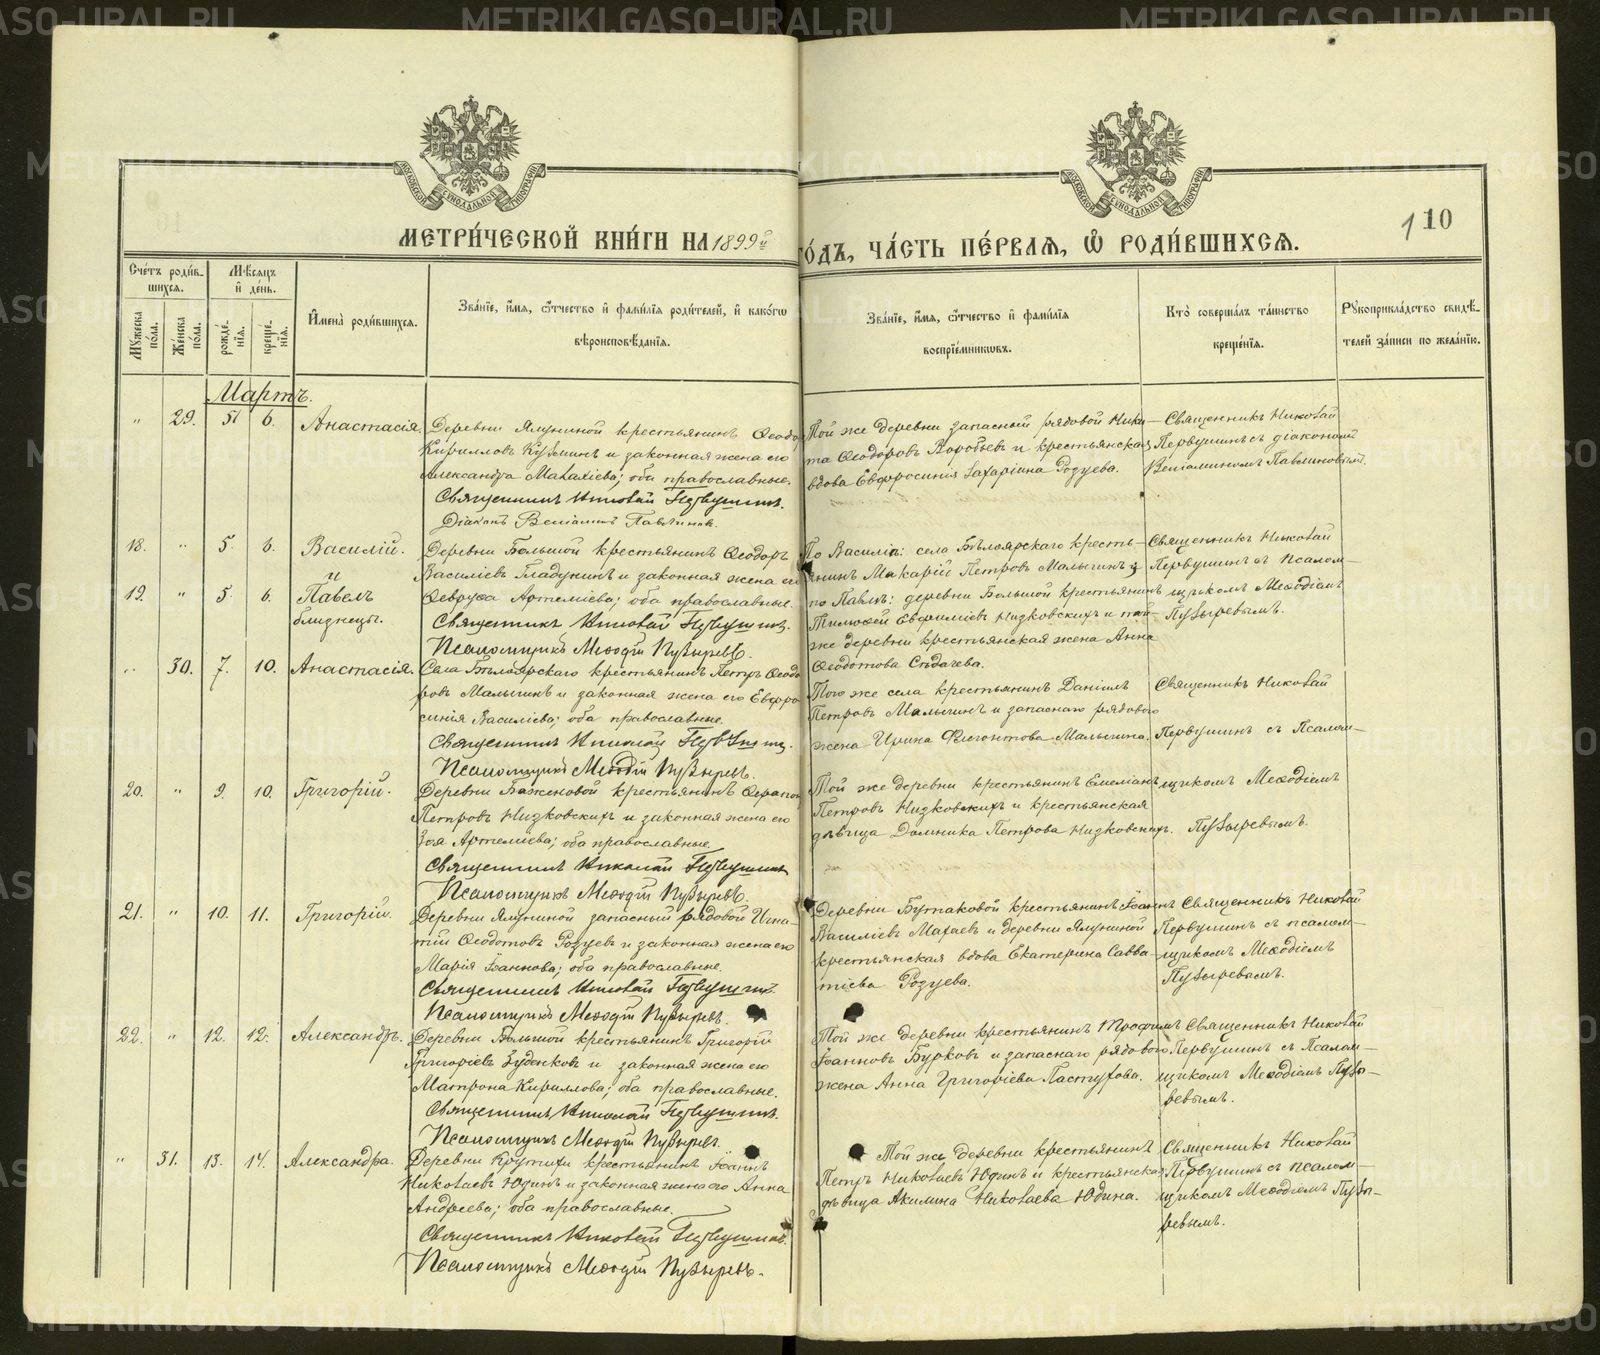 METRIKI.GASO-URAL.RU
МОСКОВСКОЙ СѴНОДАЛЬНОЙ ТИПОГРАФІИ
МОСКОВСКОЙ СѴНОДАЛЬНОЙ ТИПОГРАФІИ
110
МЕТРИ́ЧЕСКОЙ КНИ́ГИ НА 1899й
ГО́ДЪ, ЧА́СТЬ ПЕ́РВАЯ, Ѡ҆ РОДИ́ВШИХСЯ.
Сче́тъ роди́вшихся.
Мꙋ́жеска по́ла.
Же́нска по́ла.
Мѣ́сяцъ и҆ де́нь.
рожде́нїя.
креще́нїя.
И҆мена̀ роди́вшихся.
Зва́нїе, и҆́мя, ѻ҆́тчество и҆ фами́лїя роди́телей, и҆ како́гѡ
вѣроисповѣ́данїя.
Зва́нїе, и҆́мя, ѻ҆́тчество и҆ фами́лїя
воспрїе́мникѡвъ.
Кто̀ соверша́лъ та́инство
креще́нїя.
Рꙋкоприкла́дство свидѣ́телей за́писи по жела́нїю.
Мартъ.
" 29. 5 6. Анастасія.
Деревни Ялуниной крестьянинъ Ѳеодоръ
Кирилловъ Кузьминъ и законная жена его
Александра Малахіева; оба православные.
Священникъ Николай Первушинъ.
Діаконъ Веніаминъ Павлиновъ.
Той же деревни запасный рядовой Ники-
та Ѳеодоровъ Воробьевъ и крестьянская
вдова Евфросинія Захаріина Розуева.
Священникъ Николай
Первушинъ съ діакономъ
Веніаминомъ Павлиновымъ.
18. " 5. 6. Василій.
19. " 5. 6. и Павелъ
близнецы.
Деревни Большой крестьянинъ Ѳеодоръ
Василіевъ Гладунинъ и законная жена его
Ѳевруса Артеміева; оба православные.
Священникъ Николай Первушинъ.
Псаломщикъ Меѳодій Пузыревъ.
По Василіи: села Бѣлоярскаго кресть-
янинъ Макарій Петровъ Малыгинъ;
по Павлѣ: деревни Большой крестьянинъ
Тимоѳей Евфиміевъ Низковскихъ и той-
же деревни крестьянская жена Анна
Ѳеодотова Сѣдачева.
Священникъ Николай
Первушинъ съ псалом-
щикомъ Меѳодіемъ
Пузыревымъ.
" 30. 7. 10. Анастасія.
Села Бѣлоярскаго крестьянинъ Петръ Ѳеодо-
ровъ Малыгинъ и законная жена его Евфро-
синія Василіева; оба православные.
Священникъ Николай Первушинъ.
Псаломщикъ Меѳодій Пузыревъ.
Того же села крестьянинъ Даніилъ
Петровъ Малыгинъ и запаснаго рядового
жена Ирина Флегонтова Малыгина.
Священникъ Николай
Первушинъ съ Псалом-
щикомъ Меѳодіемъ
Пузыревымъ.
20. " 9. 10. Григорій.
Деревни Баженовой крестьянинъ Ѳерапонтъ
Петровъ Низковскихъ и законная жена его
Зоя Артеміева; оба православные.
Священникъ Николай Первушинъ
Псаломщикъ Меѳодій Пузыревъ.
Той же деревни крестьянинъ Емеліанъ
Петровъ Низковскихъ и крестьянская
дѣвица Домника Петрова Низковскихъ.
21. " 10. 11. Григорій.
Деревни Ялуниной запасный рядовой Игна-
тій Ѳеодотовъ Розуевъ и законная жена его
Марія Іоаннова; оба православные.
Священникъ Николай Первушинъ.
Псаломщикъ Меѳодій Пузыревъ.
Деревни Бутаковой крестьянинъ Іоаннъ
Василіевъ Махаевъ и деревни Ялуниной
крестьянская вдова Екатерина Савва-
тіева Розуева.
Священникъ Николай
Первушинъ съ псалом-
щикомъ Меѳодіемъ
Пузыревымъ.
22. " 12. 12. Александръ.
Деревни Большой крестьянинъ Григорій
Григоріевъ Зуденковъ и законная жена его
Матрона Кириллова; оба православные.
Священникъ Николай Первушинъ.
Псаломщикъ Меѳодій Пузыревъ.
Той же деревни крестьянинъ Трофимъ
Іоанновъ Бурковъ и запаснаго рядового
жена Анна Григоріева Пастухова.
Священникъ Николай
Первушинъ съ Псалом-
щикомъ Меѳодіемъ Пузы-
ревымъ.
" 31. 13. 14. Александра.
Деревни Крутихи крестьянинъ Іоаннъ
Николаевъ Юдинъ и законная жена его Анна
Андреева; оба православные.
Священникъ Николай Первушинъ.
Псаломщикъ Меѳодій Пузыревъ.
Той же деревни крестьянинъ
Петръ Николаевъ Юдинъ и крестьянская
дѣвица Акилина Николаева Юдина.
Священникъ Николай
Первушинъ съ псалом-
щикомъ Меѳодіемъ Пузы-
ревымъ.